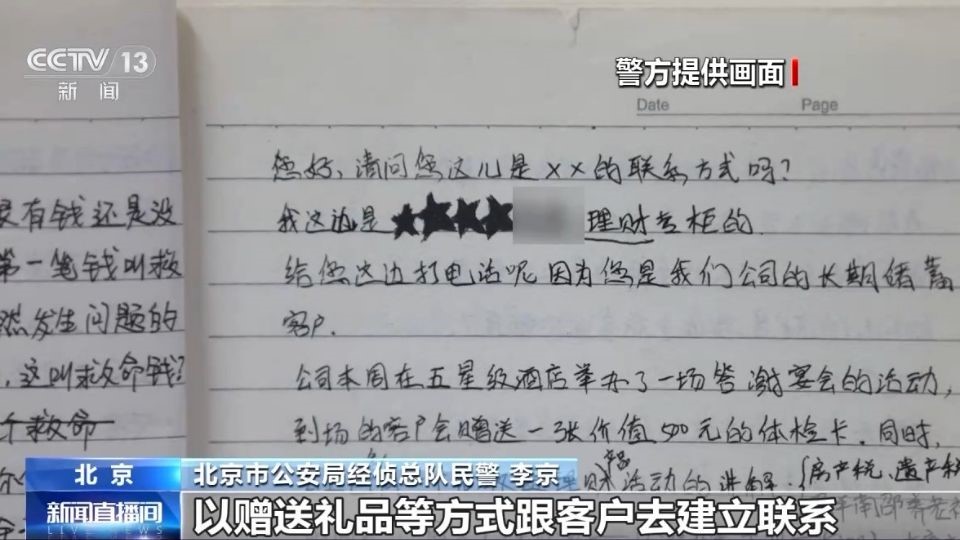 CCTV 13
新闻
警方提供画面
Date Page
您好、请问您这儿是××的联系方式吗?
我这边是 理财专柜的
给您这边打电话呢因为您是我们公司的长期储蓄
客户.
公司本周在五星级酒店举办了一场答谢宴会的活动,
到场的客户会赠送一张价值500元的体检卡.同时,
财 活动的讲解.(房产税、遗产税
是有钱还是没
第一笔钱叫救
然发生问题的
,这叫救命钱?
个救命
北京
北京市公安局经侦总队民警 李京
新闻直播间
LIVE NEWS
以赠送礼品等方式跟客户去建立联系